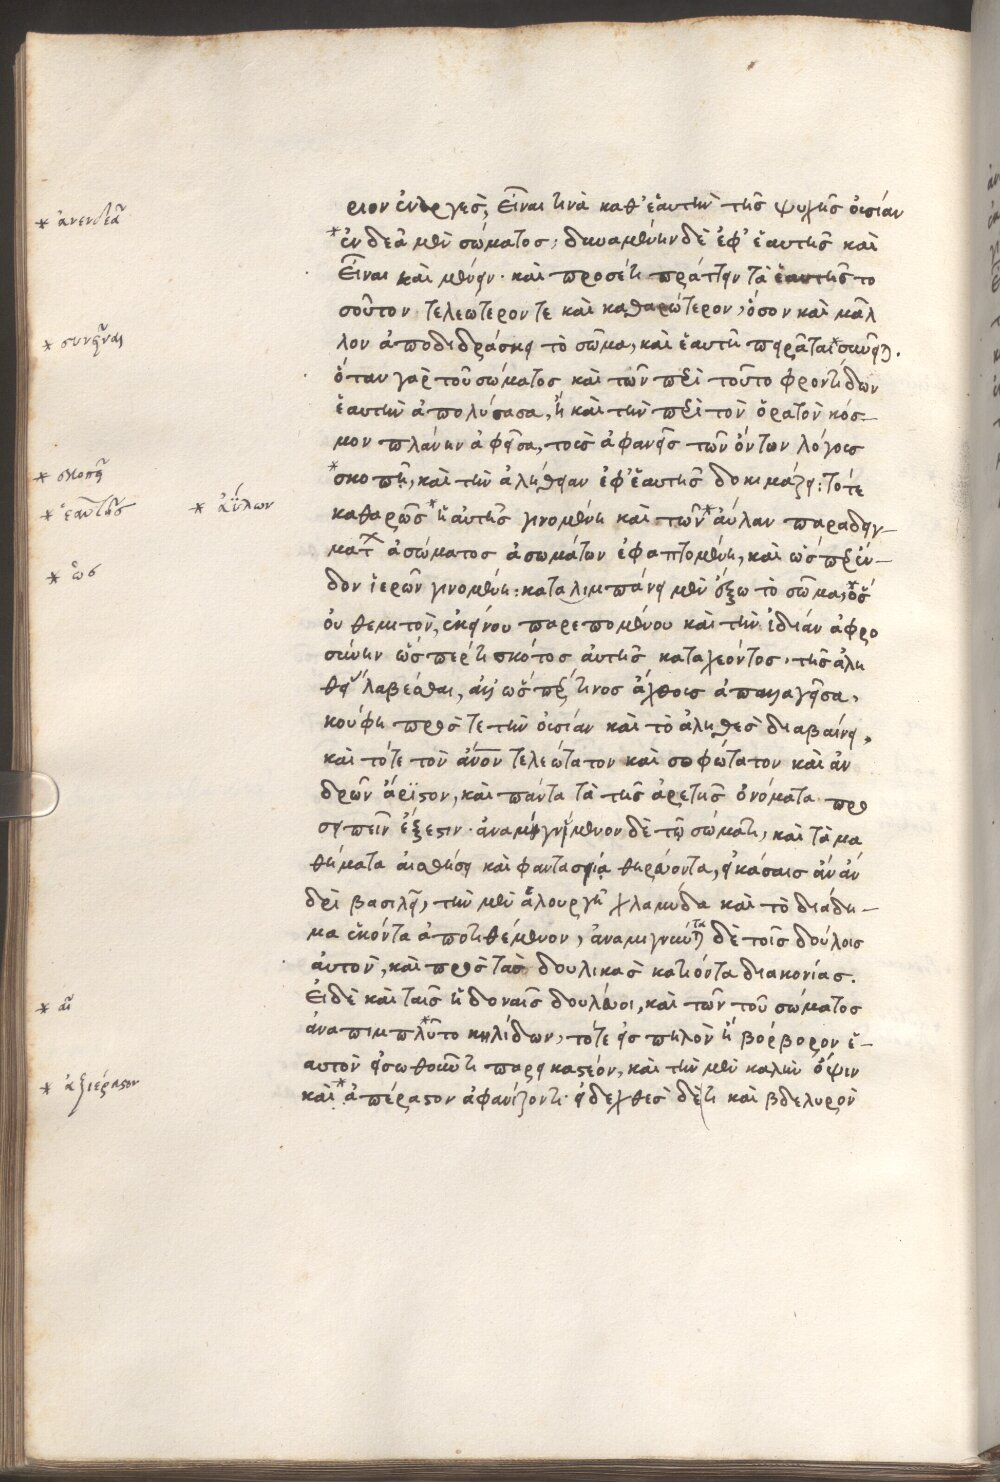 * ἀνενδεᾶ
ριον ἐνεργές, εἶναι τινὰ καθ' ἑαυτὴν τῆς ψυχῆς οὐσίαν
*ἐνδεᾶ μὲν σώματος, δυναμένην δὲ ἐφ' ἑαυτῆς καὶ
εἶναι καὶ μένειν· καὶ προσέτι πράττειν τὰ ἑαυτῆς το
σοῦτον τελεώτερον τε καὶ καθαρώτερον, ὅσον καὶ μᾶλ
* συνεῖναι
λον ἀποδιδράσκει τὸ σῶμα, καὶ ἑαυτῇ πειρᾶται *
ὅταν γὰρ τοῦ σώματος καὶ τῶν περὶ τοῦτο φροντίδων
ἑαυτὴν ἀπολύσασα, ἢ καὶ τὴν περὶ τὸν ὁρατὸν κόσ-
μον πλάνην ἀφεῖσα, τοῖς ἀφανέσι τῶν ὄντων λόγοις
* σκοπεῖ
*σκοπῆ, καὶ τὴν ἀλήθειαν ἐφ' ἑαυτῆς δοκιμάζει: τότε
* ἑαυτῆς * ἀΰλων
καθαρῶς *ἡ αὐτῆς γινομένη καὶ τῶν *ἀύλαν παραδειγ-
ματ ἀσώματος ἀσωμάτων ἐφαπτομένη, καὶ ὥσπερ ἔν-
* ὡς
δον ἱερῶν γινομένη: καταλιμπάνει μὲν ἔξω τὸ σῶμα, *οὗ
οὐ θεμιτὸν, ἐκείνου παρεπομένου καὶ τὴν ἰδίαν ἀφρο
σύνην ὥσπερ τι σκότος αὐτῆς καταχέοντος, τῆς ἀλη
θεί λαβέσθαι, ἀλλ' ὥσπερ τινος ἄχθους ἀπαλλαγεῖσα,
κούφη πρός τε τὴν οὐσίαν καὶ τὸ ἀληθὲς διαβαίνει,
καὶ τότε τὸν ἄνον τελεώτατον καὶ σοφώτατον καὶ ἀν
δρῶν ἄριστον, καὶ πάντα τὰ τῆς ἀρετῆς ὀνόματα προ
σειπεῖν ἔξεστιν· ἀναμιγνύμενον δὲ τῷ σώματι, καὶ τὰ μα
θήματα αἰσθήσει καὶ φαντασίᾳ θηρῶντα, εἰκάσαις ἂν ἀν
δρὶ βασιλεῖ, τὴν μὲν ἁλουργῆ χλαμύδα καὶ τὸ διάδη-
μα ἑκόντα ἀποτιθέμενον, ἀναμιγνύντα δὲ τοῖς δούλοις
αὑτὸν, καὶ πρὸς τὰς δουλικὰς κατιόντα διακονίας.
* αῖ
Εἰ δὲ καὶ ταῖς ἡδοναῖς δουλεύοι, καὶ τῶν τοῦ σώματος
ἀναπιμπλ*ῦτο κηλίδων, τότε εἰς πηλὸν ἢ βόρβορον ἑ-
αυτὸν εἰσωθοῦντι παρεικαστέον, καὶ τὴν μὲν καλὴν ὄψιν
* ἀξιέραστον
καὶ *ἀπέραστον ἀφανίζοντι· εἰδεχθὲς δέ τι καὶ βδελυρὸν